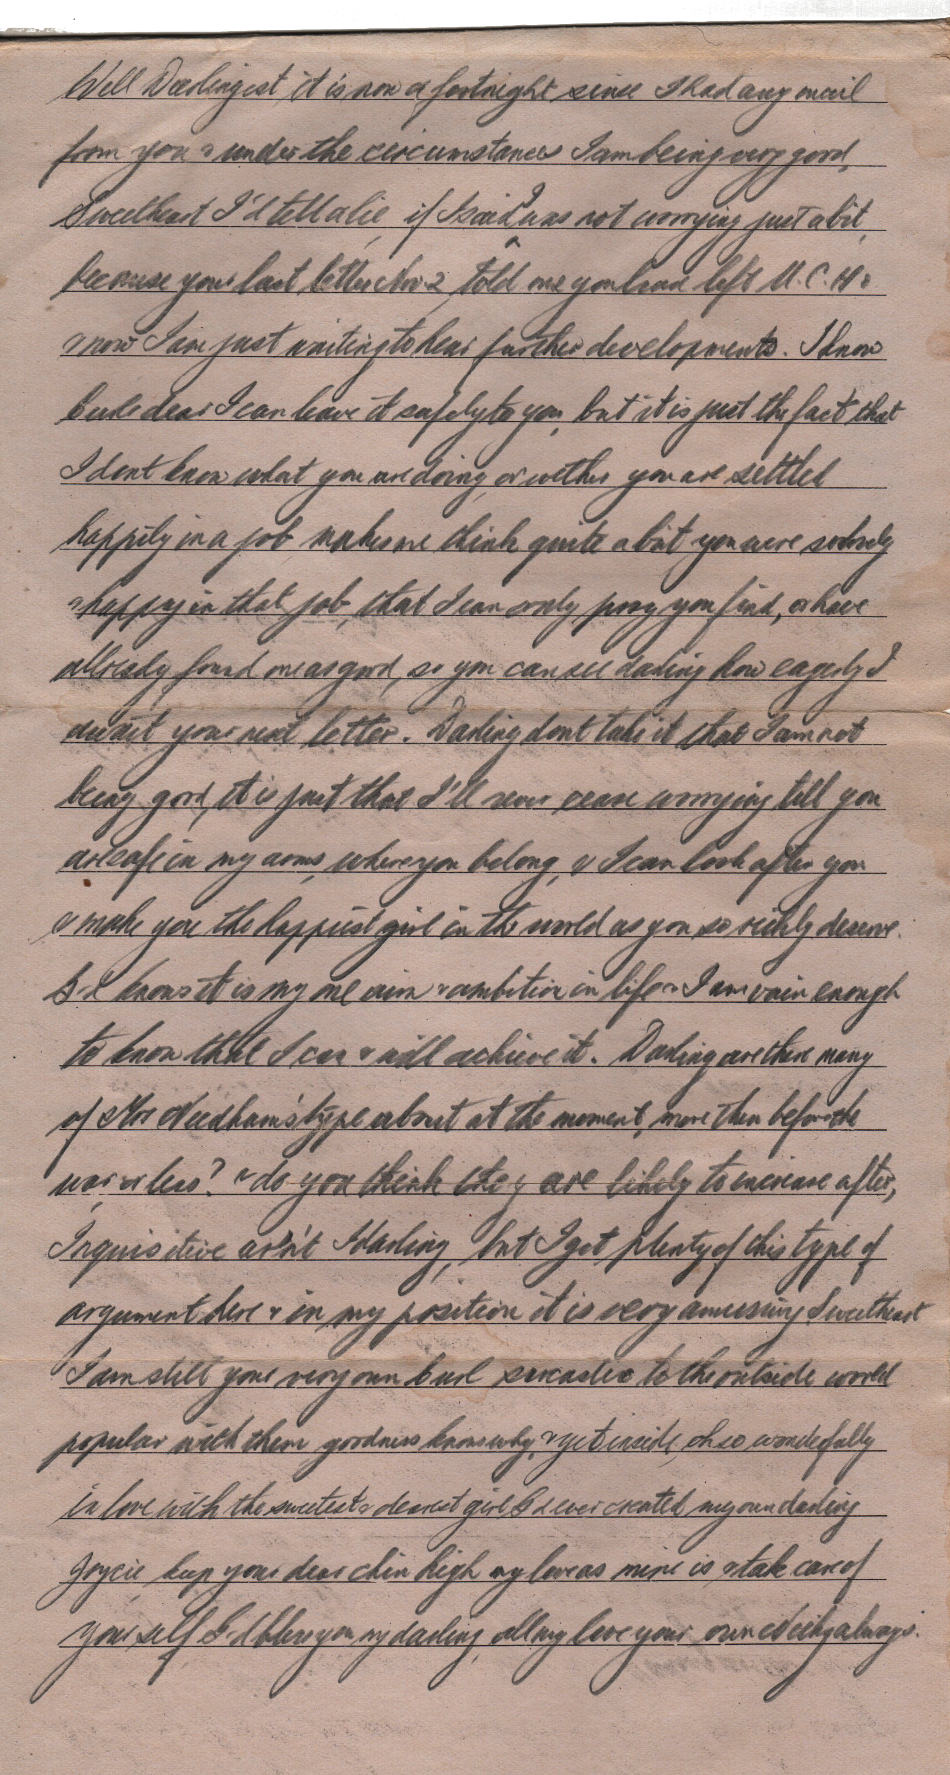 Well Darlingest it is now a fortnight since I had any mail
from you & under the circumstances I am being very good,
Sweetheart I'd tell a lie, if I said I was not worrying just a bit,
because your last letter No 2 told me you have left U.C.H.
& now I am just waiting to hear further developments. I know
dear I can leave it safely to you, but it is just the fact that
I dont know what you are doing, or wether you are settled
happily in a job makes me think quite a bit you were so
& happy in that job, that I can only pray you find, or have
allready found one as good, so you can see darling how eagerly I
await your next letter. Darling dont take it that I am not
being good, it is just that I'll never cease worrying till you
are safe in my arms, where you belong, & I can look after you
& make you the happiest girl in the world as you so richly deserve.
G-d knows it is my one aim & ambition in life & I am vain enough
to know that I can & will achieve it. Darling are there many
of Mrs Needham's type about at the moment, more than before the
war or less? & do you think they are likely to increase after,
Inquisitive ar'n't I darling, but I get plenty of this type of
argument here & in my position it is very amussing Sweetheart
I am still your very own sarcastic to the outside world
popular with them goodness knows why, & yet inside, oh so wonderfully
in love with the sweetest & dearest girl G-d ever created my own darling
Joycie keep your dear chin high my love as mine is & take care of
yourself G-d bless you my darling, all my love your own always.